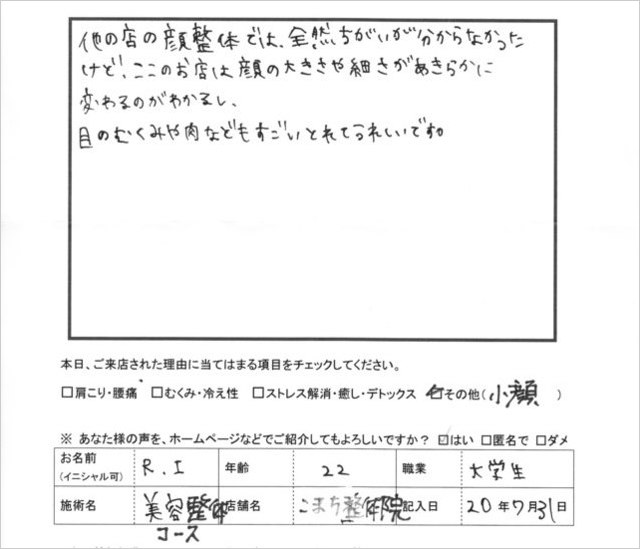 他の店の顔整体では、全然ちがいが分からなかった
けど、ここのお店は顔の大きさや細さがあきらかに
変わるのがわかるし、
目のむくみや肉などもすごいとれてうれしいです。
本日、ご来店された理由に当てはまる項目をチェックしてください。
□肩こり・腰痛 □むくみ・冷え性 □ストレス解消・癒し・デトックス ☑その他(小顔)
※ あなた様の声を、ホームページなどでご紹介してもよろしいですか？ ☑はい □匿名で □ダメ
お名前 R.I 年齢 22 職業 大学生
(イニシャル可)
施術名 美容整体 店舗名 こまち整体院 記入日 20年7月31日
コース